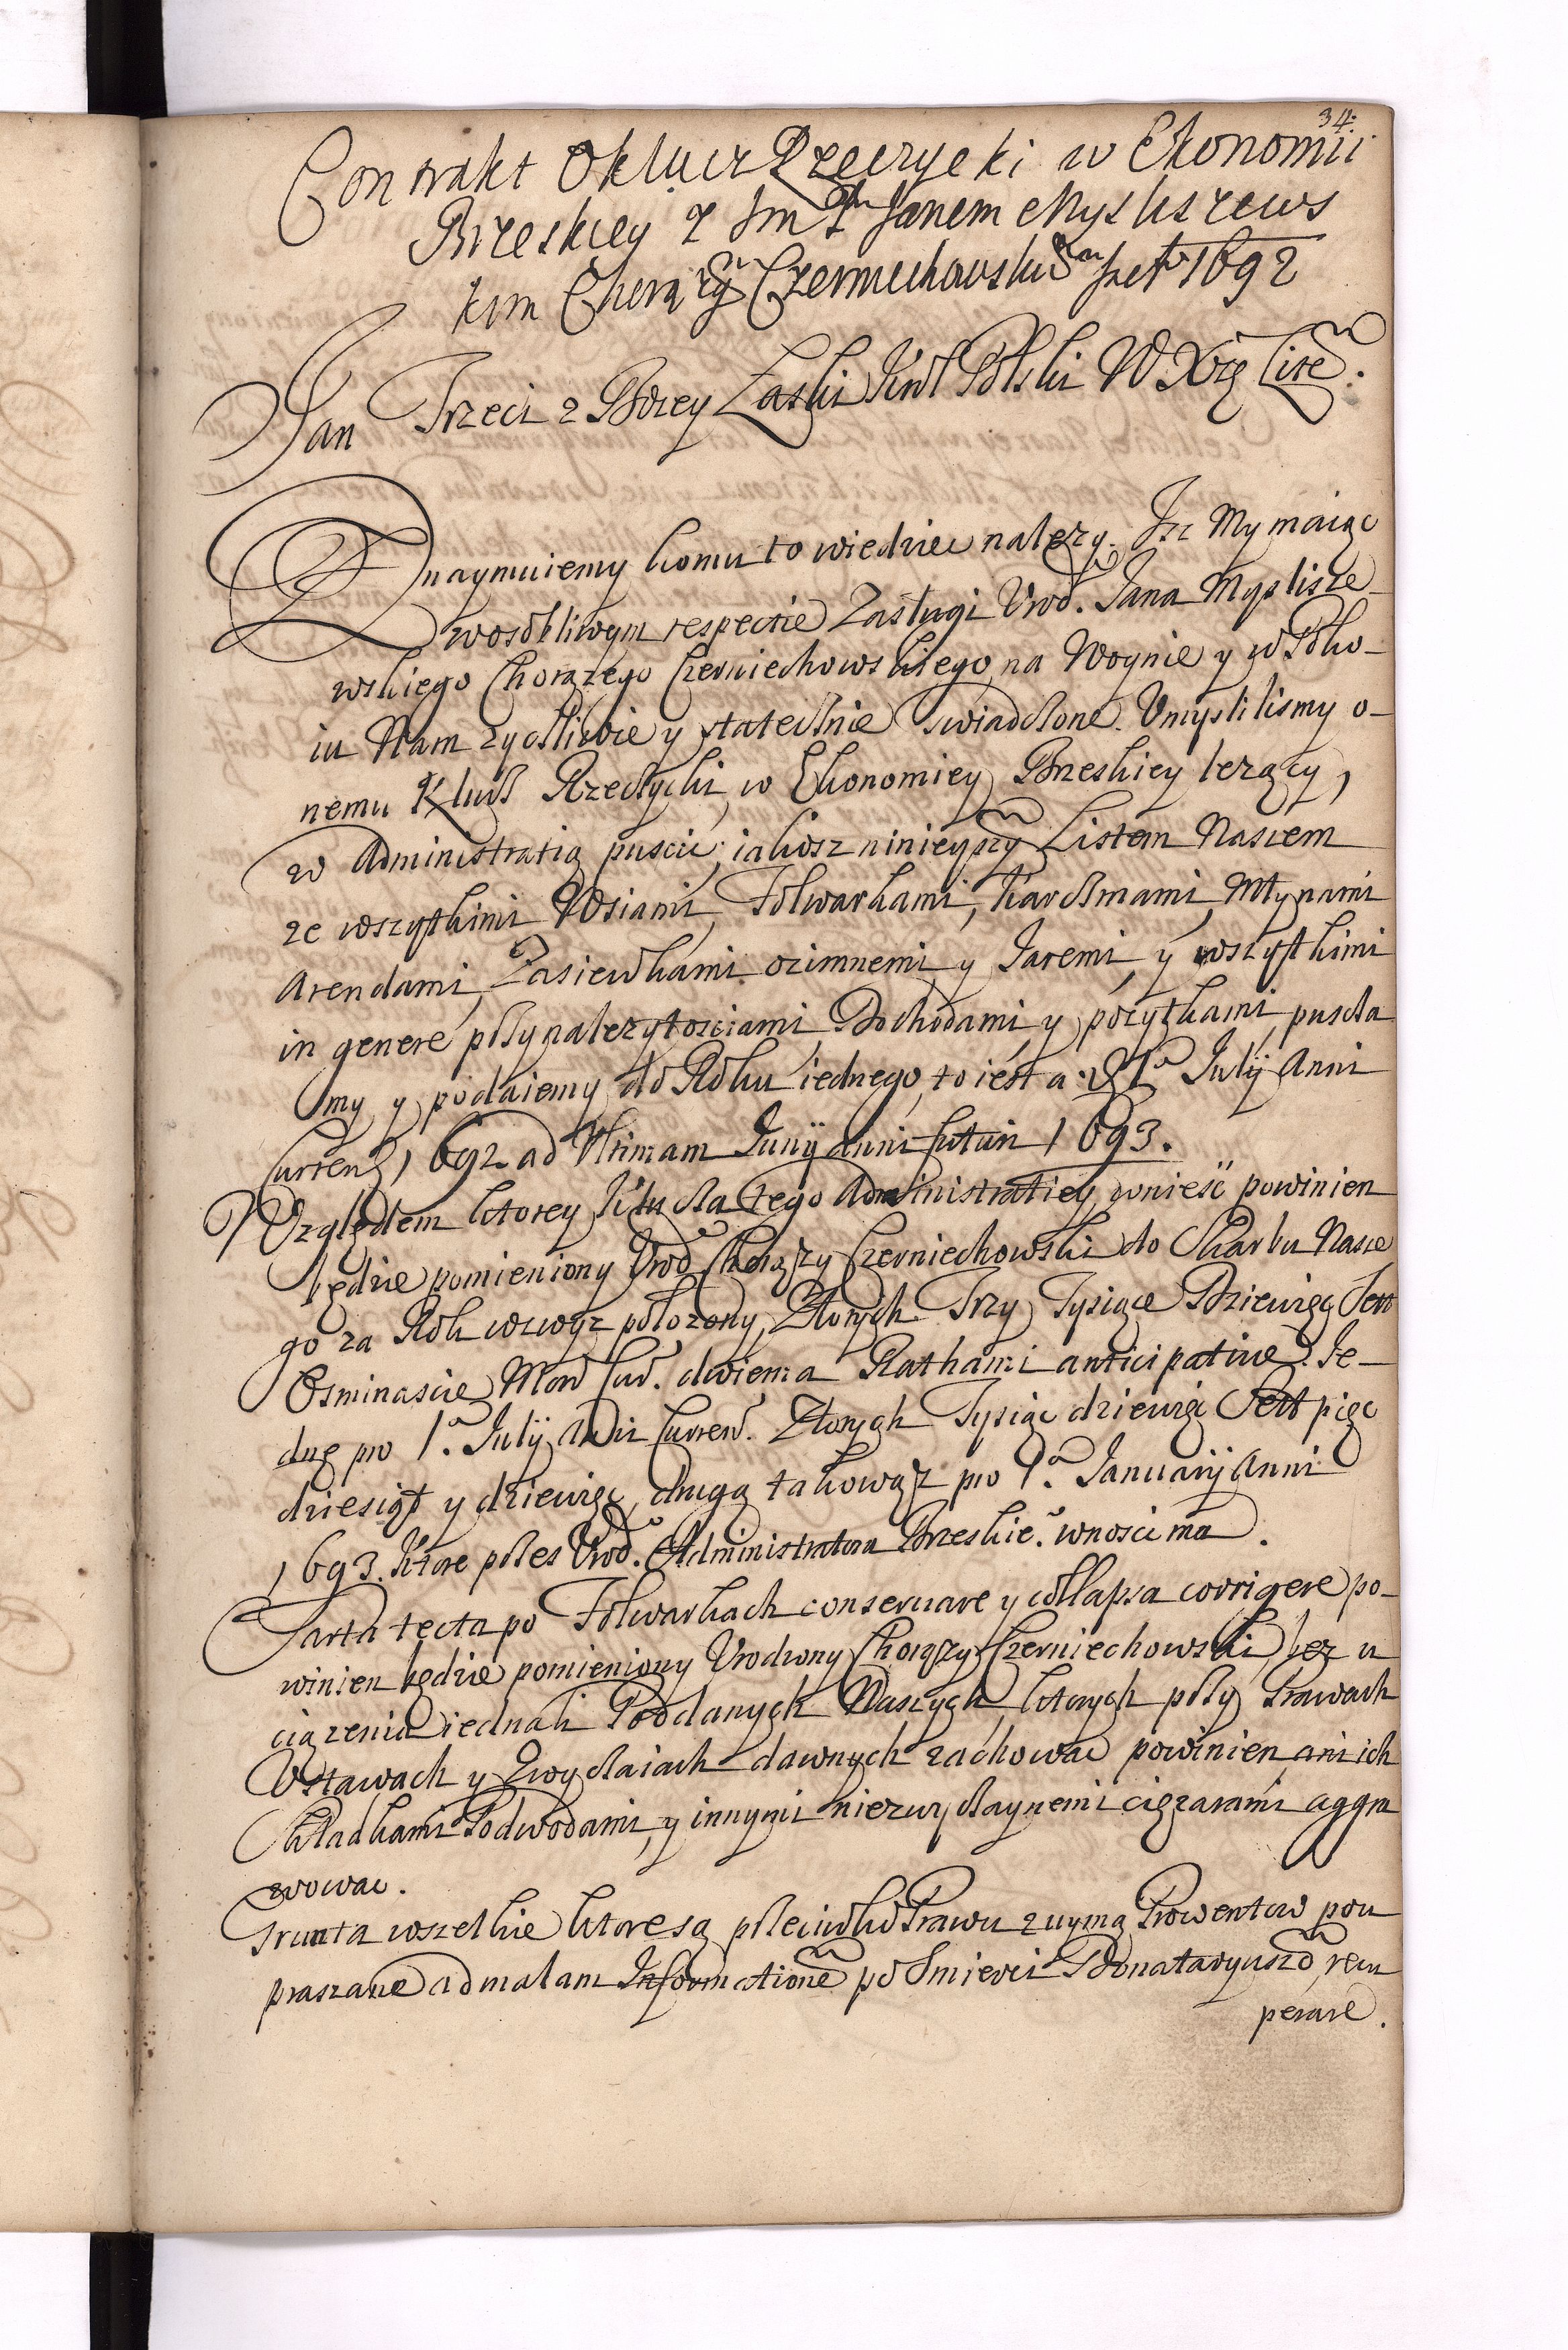 34.
Contrakt O klucz Rzeczycki w Ekonomii
Brzeskiey z Jm Pm Janem Mysliszews
kim Chorąży Czerniechowski 1692
Jan Trzeci z Bożey Łaski Krol Polski W. Xże Litt.
Znaymuiemy komu to wiedziec nalezy. Jsz My maiąc
w osobliwym respecie Zasługi Urod. Jana Myslisze-
wskiego Chorązego Czerniechowskiego na Woynie y w Poko-
iu Nam zyczliwie y statecznie swiadczone. Umyslilismy o-
nemu Klucz Rzeczycki, w Ekonomiey Brzeskiey lezący,
w Administratią puscic; iakosz ninieyszy Listem Naszem
ze wszytkimi Wsiami, Folwarkami, Karczmami, Młynami
Arendami, Zasiewkami ozimnemi y Jaremi, y wszytkimi
in genere przynalezytosciami, Dochodami y pozytkami, puscza
my y podaiemy do Roku iednego, to iest a 1a Julÿ Anni
Curren 1692 ad Ultimam Junÿ anni futuri 1693.
Względem ktorey Klucza tego Administratiey, wnieść powinien
będzie pomieniony Urod Chorąży Czerniechowski do Skarbu Nasze
go za Rok wzwyz połozony, Złotych Trzy Tysiące Dziewięc Sett
Osminascie Mon Cur. dwiema Rathami anticipative. Je-
dnę pro 1a Julÿ Anni Curren. Złotych Tysiąc dziewięc Sett pięc
dziesiąt y dziewięc, drugą takowąz pro 1a Januarÿ Anni
1693. Ktore przes Urod. Administratora Brzeskie. wnosic ma.
Sarta tecta po Folwarkach conservare y collapsa corrigere po-
winien będzie pomieniony Urodzony Chorąży Czerniechowski, bez u
ciązenia iednak Poddanych Naszych, ktorych przy Prawach
Ustawach y Zwyczaiach dawnych zachowac powinien, ani ich
Składkami Podwodami, y innymi niezwyczaynemi cięzarami aggra
vowac.
Grunta wszelkie ktore są przeciwko Prawu z uymą Prowentow pou
praszane ad malam Informatione po Smierci Donataryuszo, recu
perare.